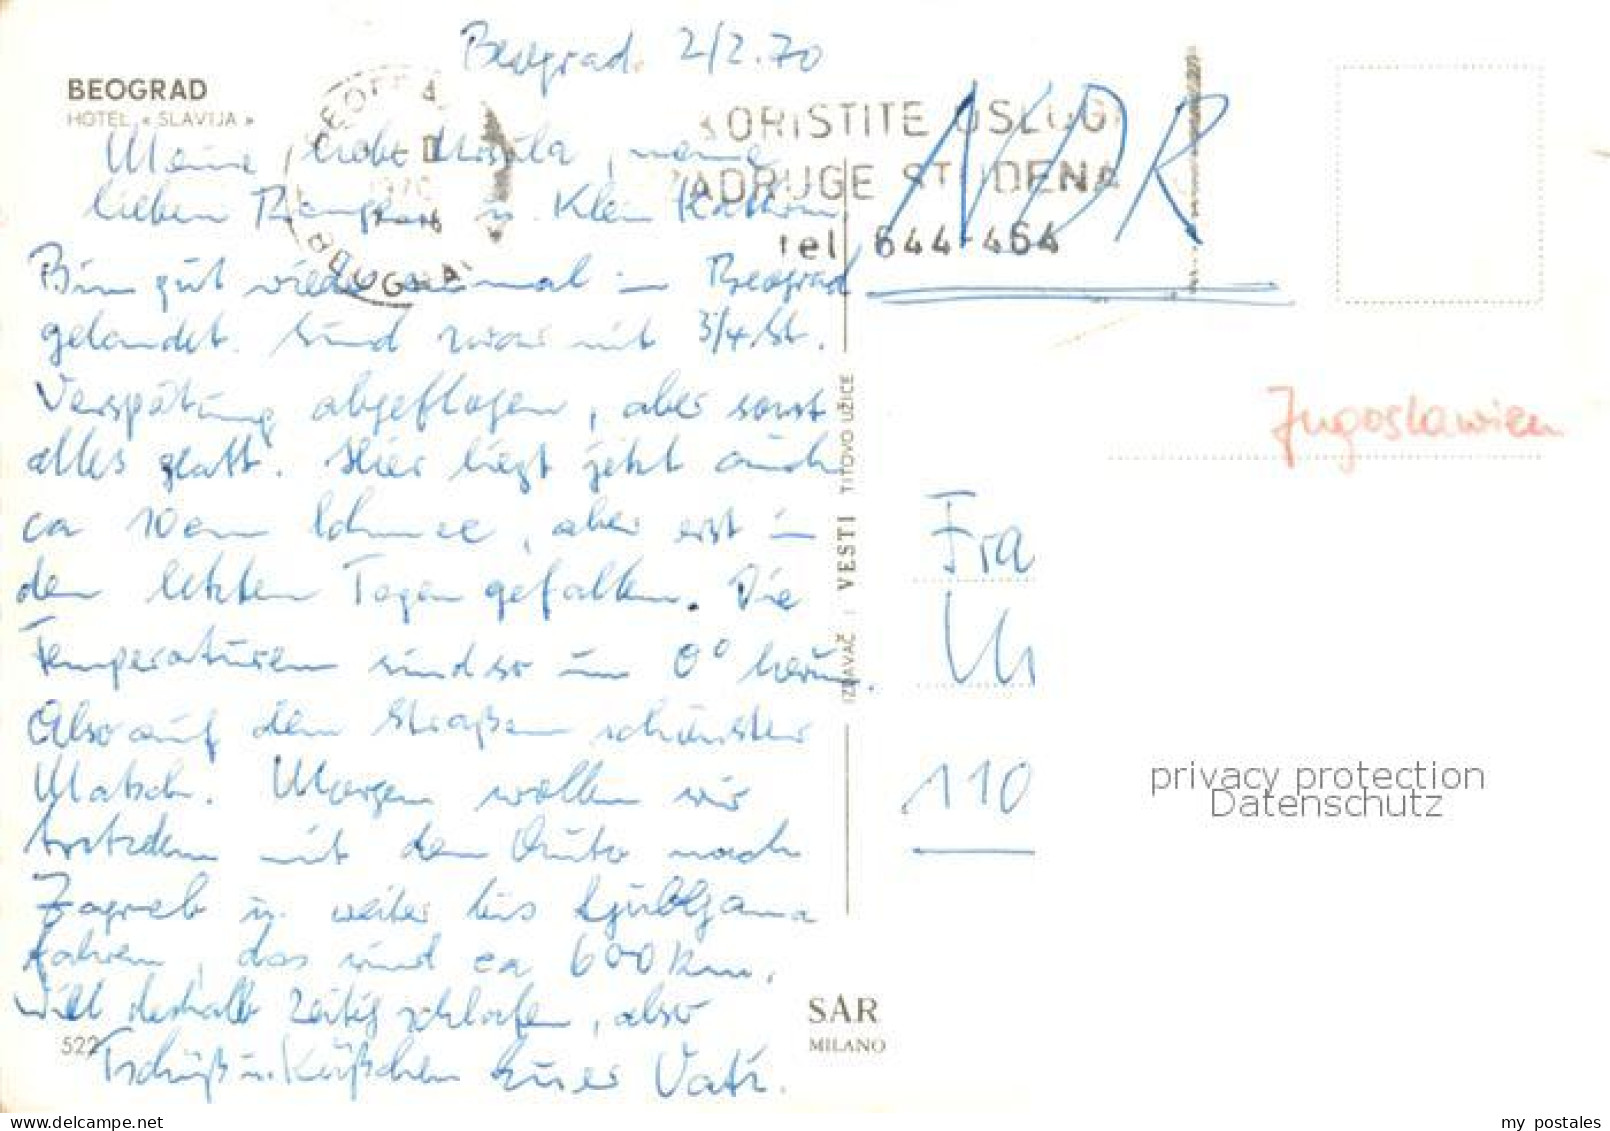 Beograd 2/2.70
BEOGRAD
HOTEL « SLAVIJA »
KORISTITE USLUGE
ZADRUGE STUDENA
tel 644-464
BEOGRAD
1970
NDR
Meine liebe Ursula, meine
lieben u. Klein Kathrin
Bin gut wieder einmal in Beograd
gelandet. Sind zwar mit 3/4 St.
Verspätung abgeflogen, aber sonst
alles glatt. Hier liegt jetzt auch
ca 10 cm Schnee, aber erst in
den letzten Tagen gefallen. Die
Temperaturen sind so um 0° herum.
Also auf den Straßen schönster
Matsch. Morgen wollen wir
trotzdem mit dem Auto nach
Zagreb u. weiter bis Ljubljana
fahren, das sind ca 600 km.
Will deshalb zeitig schlafen, also
Tschüß u. Küßchen Euer Vati.
522
IZDAVAČ VESTI TITOVO UŽICE
SAR
MILANO
Jugoslawien
Fra
110
privacy protection
Datenschutz
my postales